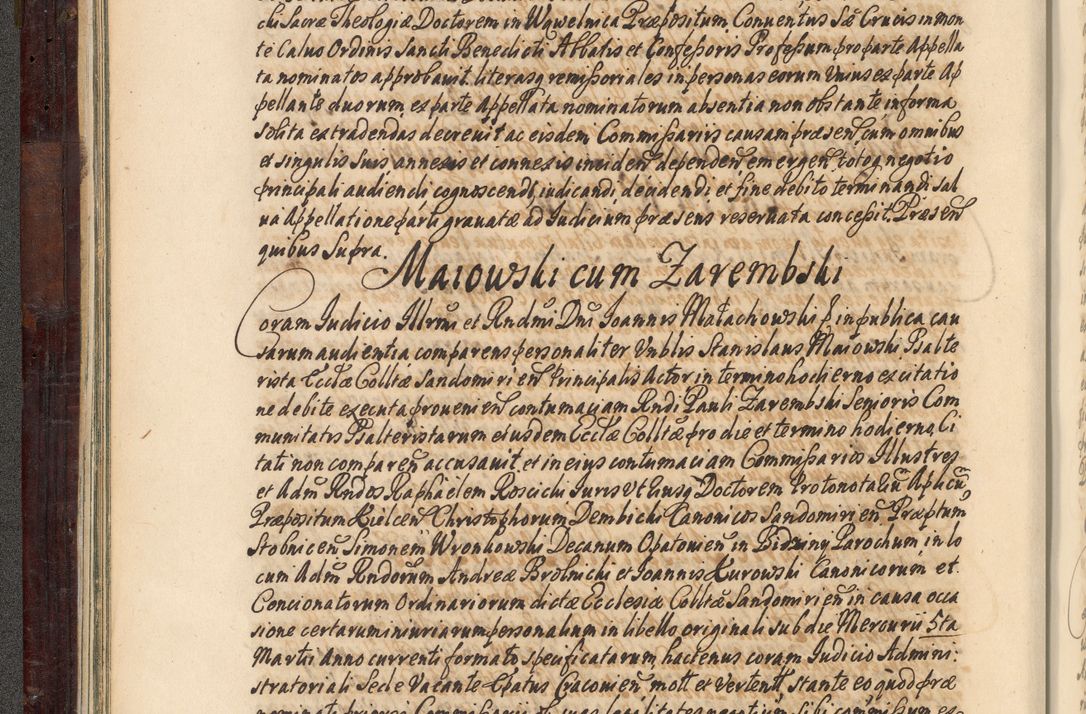 chi Sacræ Theologiæ Doctorem in Wąwelnica Præpositum Conventus Sæ Crucis in mon
te Caluo Ordinis Sancti Benedicti Abbatis et Confessoris Professum pro parte Appella
ta nominatos approbauit. literasq remissoriales in personas eorum Vnius ex parte Ap
pellante duorum ex parte Appellata nominatorum absentia non obstante in forma
solita extradendas decreuit ac eisdem Commissarÿs causam præsen cum omnibus
et singulis suis annexis et connexis inciden dependen emergen totoq negotio
principali audiendi cognoscendi judicandi, decidendi et fine debito terminandi sal
ua Appellatione parti grauatæ ad Iudicium præsens reseruata concessit. Præsen
quibus Supra.
Maiowski cum Zarembski
Coram Iudicio Illrmi et Rndmi Dni Ioannis Małachowski in publica cau
sarum audientia comparens personaliter Vnblis Stanislaus Maiowski Psalte
rista Ecclæ Colltæ Sandomirien Principalis Actor in termino hodierno ex citatio
ne debite executa prouenien contumaciam Rndi Pauli Zarembski Senioris Com
munitatis Psalteristarum eiusdem Ecclæ Colltæ pro die et termino hodierno Ci
tati non comparen accusauit. et in eius contumaciam Commissarios Illustres
et Adm Rndos Raphaelem Roscichi Iuris Vtriusq Doctorem Protonotarium Aplicu
Præpositum Kielcen Christophorum Dembichi Canonicos Sandomirien Præptum
Stobnicen Simonem Wronkowski Decanum Opatouien in Bidziny Parochum, in lo
cum Adm Rndorum Andreæ Brolnichi et Ioannis Kurowski Canonicorum et
Concionatorum Ordinariorum dictæ Ecclesiæ Colltæ Sandomirien in causa occa
sione certarum iniuriarum personalium in libello originali sub die Mercurii 5ta
Martii Anno currenti formato specificatarum hactenus coram Iudicio Admini:
stratoriali Sede Vacante Epatus Cracouien mott et Vertent stante eo quod præ
nominati priores Commissarii